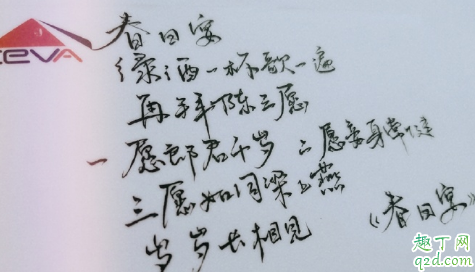 春日宴
绿酒一杯歌一遍
再拜陈三愿
一愿郎君千岁 二愿妾身常健
三愿如同梁上燕
岁岁长相见 《春日宴》
CEVA
趣丁网
q2d.com